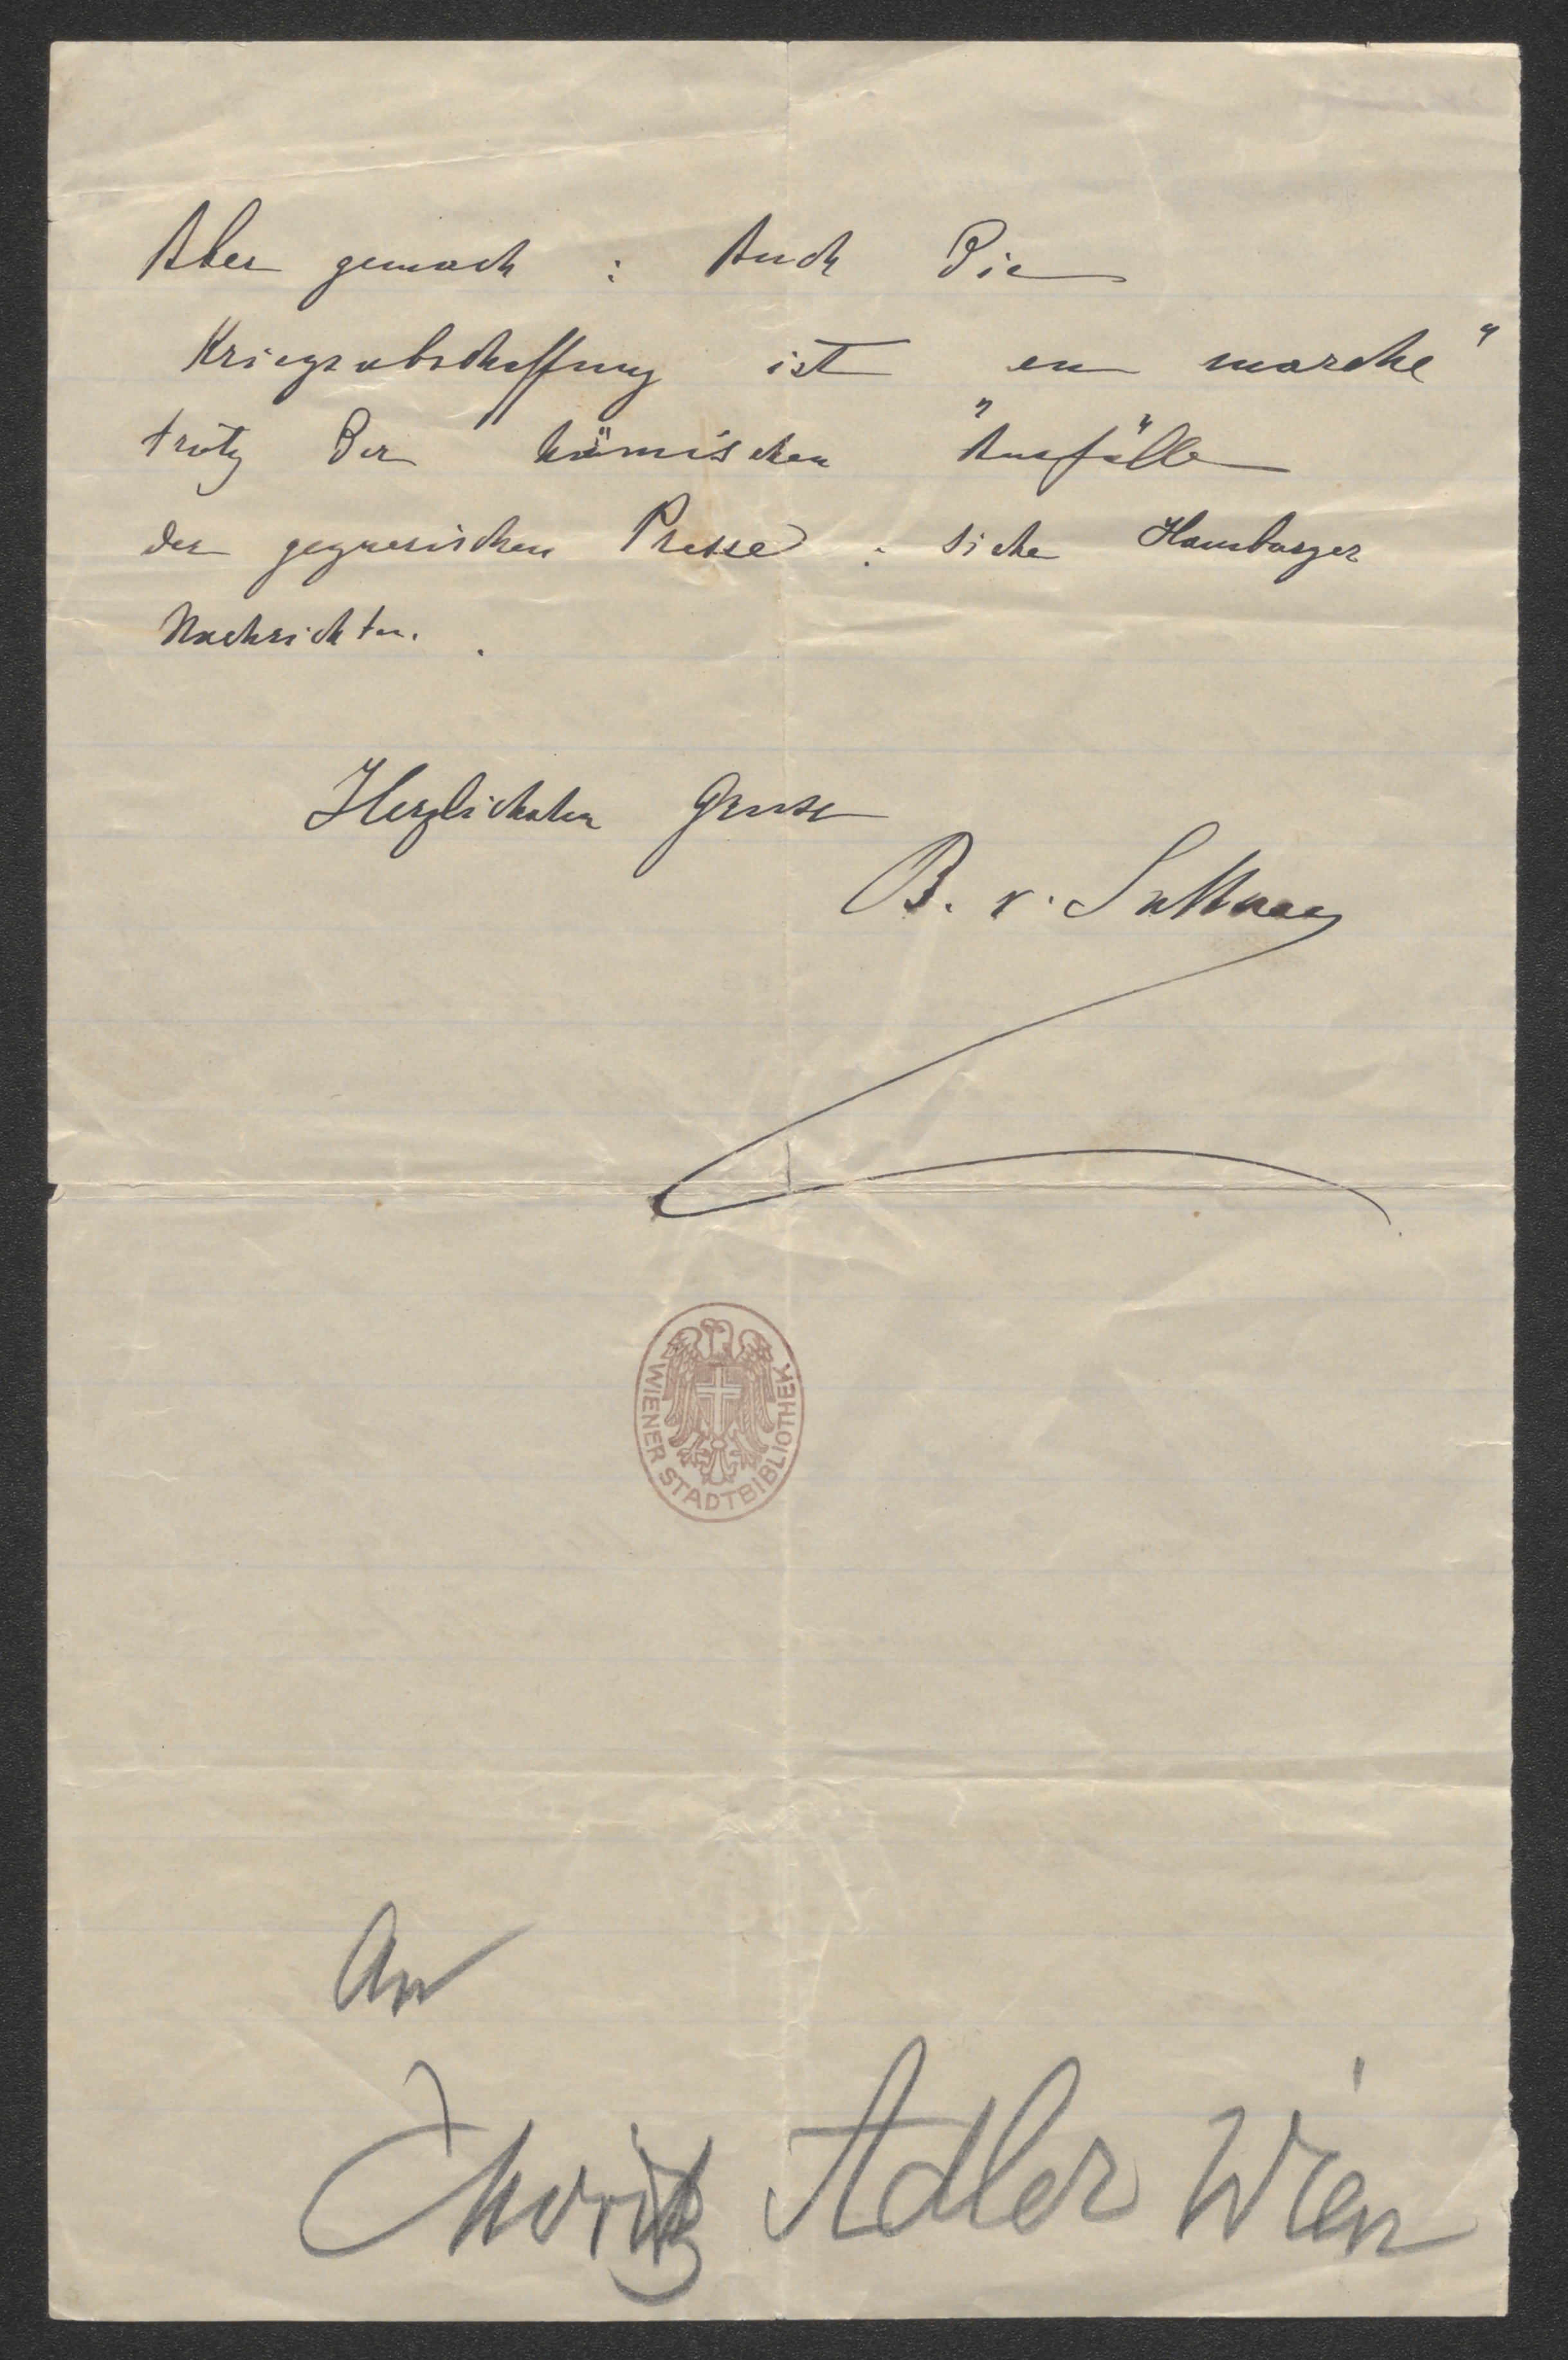 Aber gemach : Auch die
Kriegsabschaffung ist en marche"
trotz der hämischen "Ausfälle"
der gegnerischen Presse : siehe Hamburger
Nachrichten.
Herzlichsten Gruss
B. v. Suttner
WIENER STADTBIBLIOTHEK
An
Moritz Adler Wien